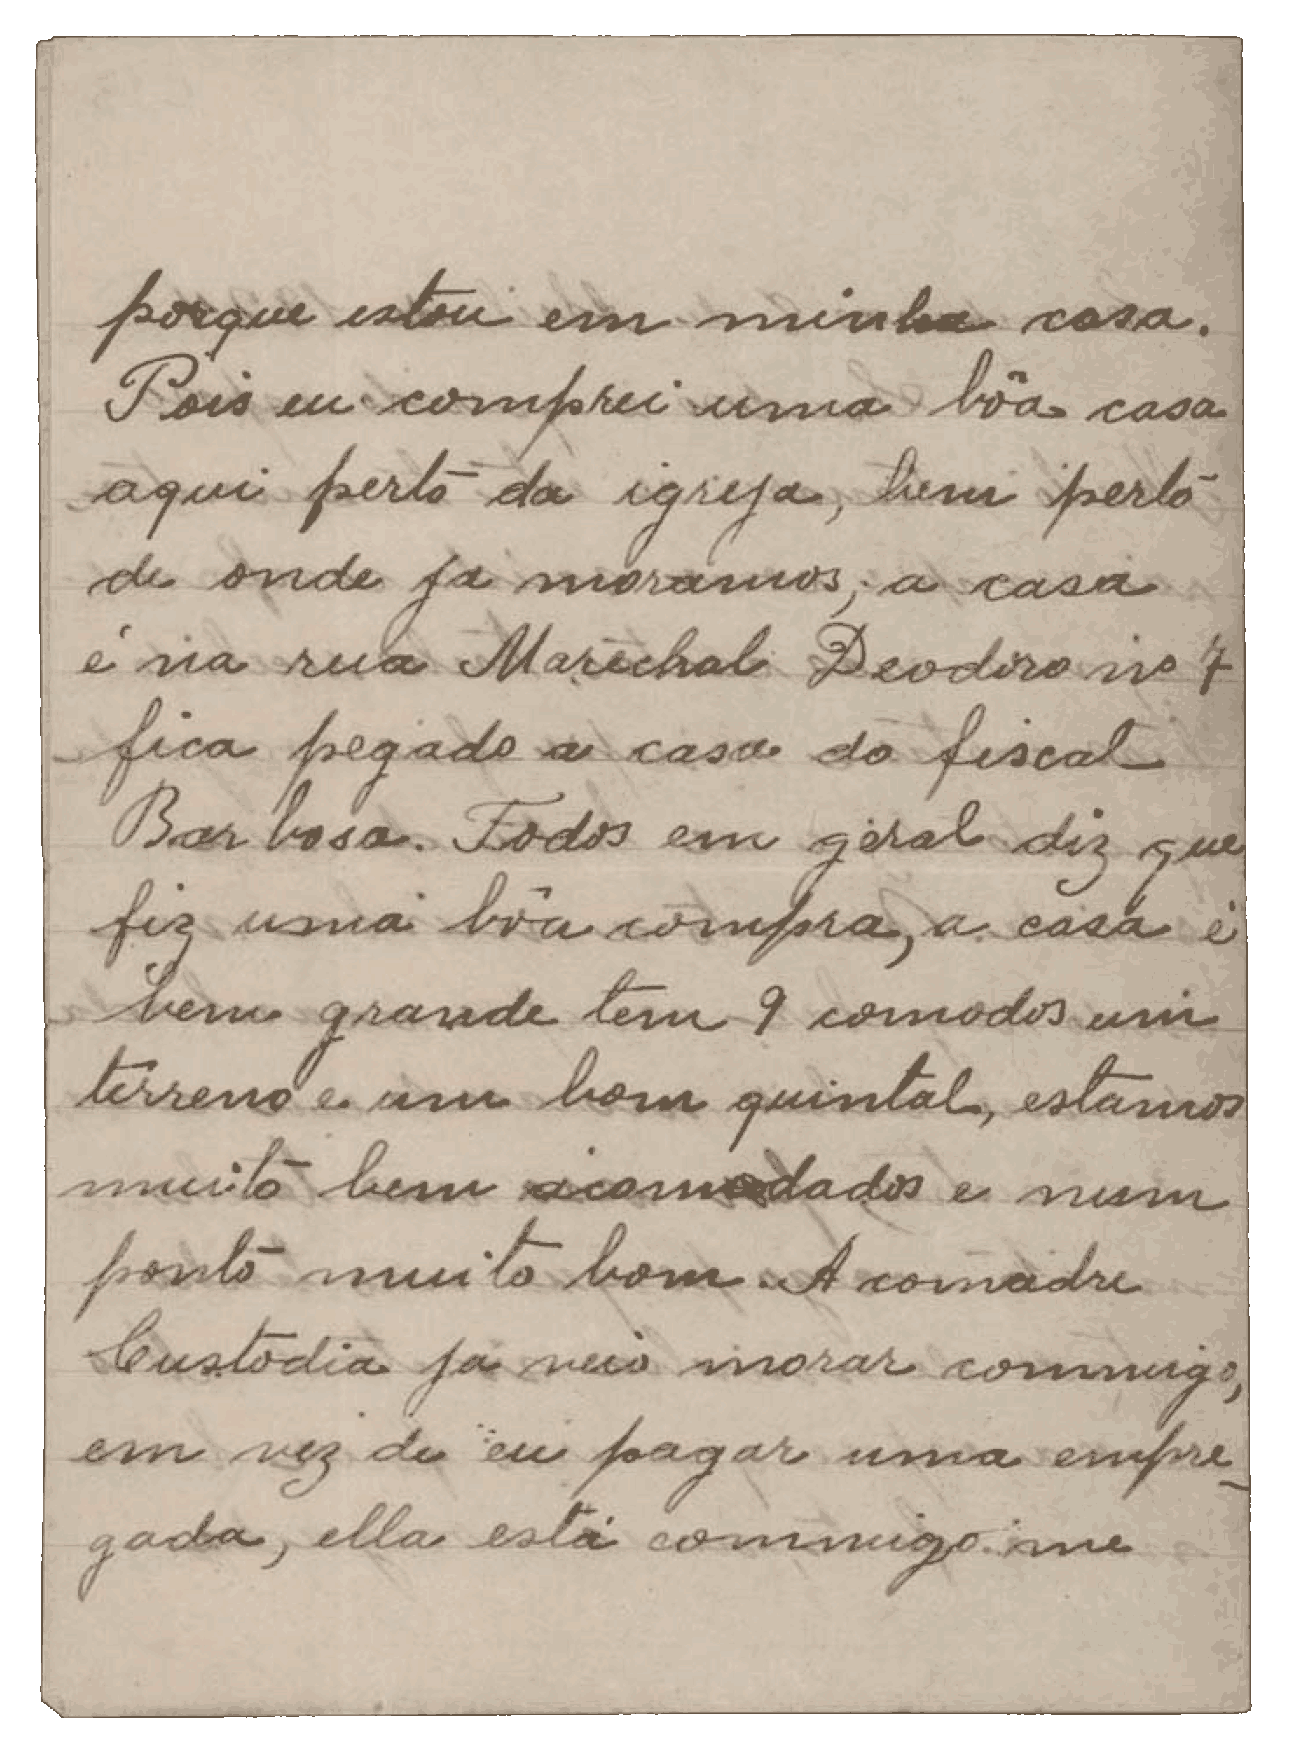 porque estou em minha casa.
Pois eu comprei uma bôa casa
aqui perto da igreja, bem perto
de onde ja moramos, a casa
é na rua Marechal Deodoro nº 7
fica pegado a casa do fiscal
Barbosa. Todos em geral diz que
fiz uma bôa compra, a casa é
bem grande tem 9 comodos um
terreno e um bom quintal, estamos
muito bem acomodados e num
ponto muito bom. A comadre
Custodia ja veio morar commigo,
em vez de eu pagar uma empre-
gada, ella está commigo me